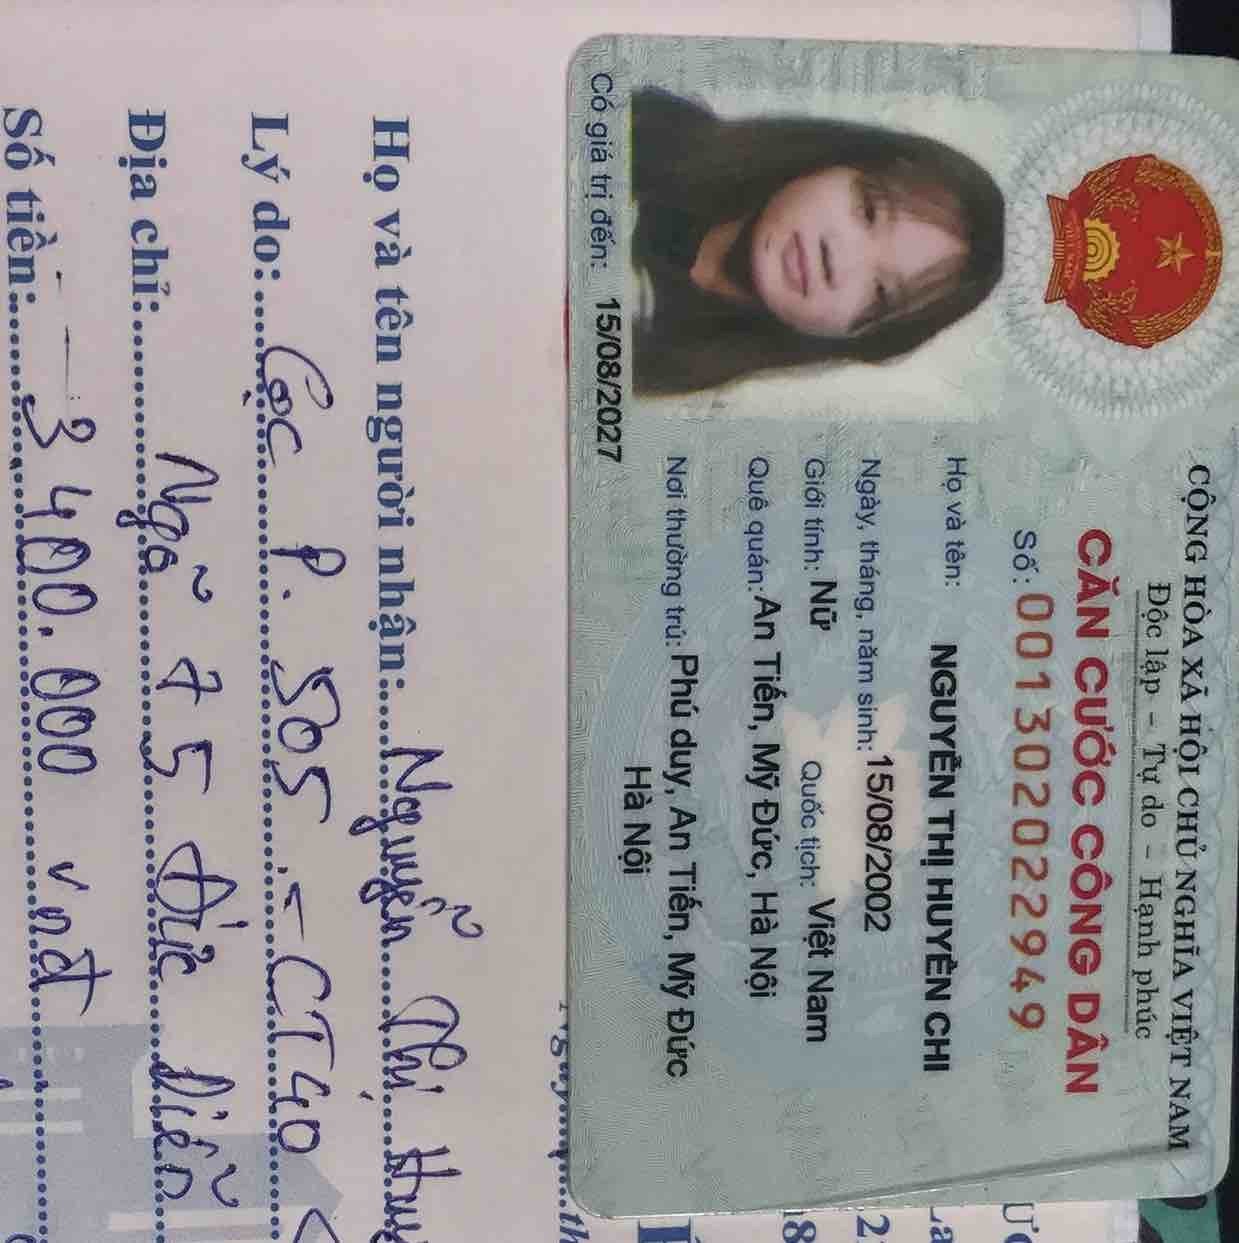 CỘNG HÒA XÃ HỘI CHỦ NGHĨA VIỆT NAM
Độc lập - Tự do - Hạnh phúc
CĂN CƯỚC CÔNG DÂN
Số: 001302022949
Họ và tên:
NGUYỄN THỊ HUYỀN CHI
Ngày, tháng, năm sinh: 15/08/2002
Giới tính: Nữ Quốc tịch: Việt Nam
Quê quán: An Tiến, Mỹ Đức, Hà Nội
Nơi thường trú: Phú duy, An Tiến, Mỹ Đức
Hà Nội
Có giá trị đến: 15/08/2027
Họ và tên người nhận: Nguyễn Thị
Lý do: Cọc P. 505 - CT40
Địa chỉ: Ngõ 75 Đức Diễn
Số tiền: 3400.000 vnđ